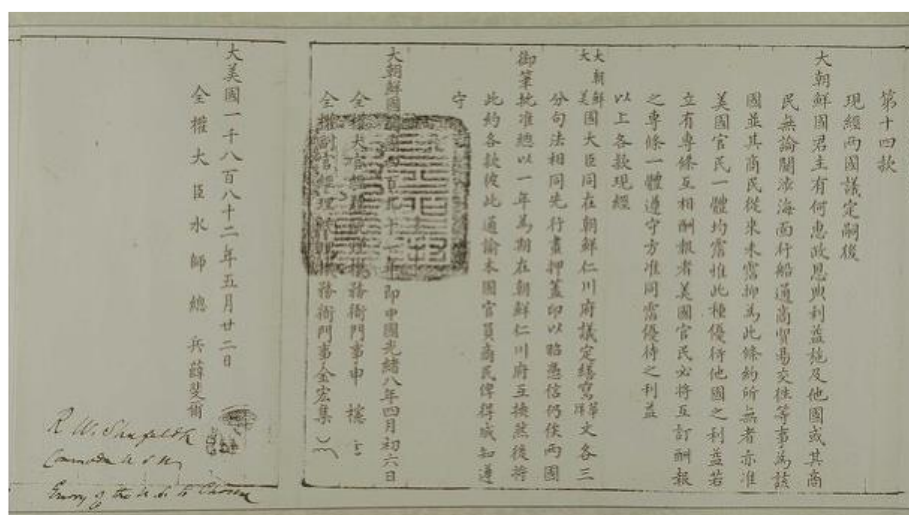 第十四款
現經兩國議定嗣後
大朝鮮國君主有何惠政恩典利益施及他國或其商
民無論關涉海面行船通商貿易交往等事為該
國並其商民從來未霑抑為此條約所無者亦准
美國官民一體均霑惟此種優待他國之利益若
立有專條互相酬報者美國官民必將互訂酬報
之專條一體遵守方准同霑優待之利益
以上各款現經
大朝鮮大美國大臣同在朝鮮仁川府議定繕寫華洋文各三
分句法相同先行畫押蓋印以昭憑信仍俟兩國
御筆批准總以一年為期在朝鮮仁川府互換然後將
此約各款彼此通諭本國官員商民俾得咸知遵
守
大朝鮮國開國四百九十一年即中國光緒八年四月初六日
全權大官經理統理機務衙門事申櫶
全權副官經理統理機務衙門事金宏集
大美國一千八百八十二年五月廿二日
全權大臣水師總兵薛斐爾
R. W. Shufeldt
Commodore U.S.N.
Envoy of the U.S. to Chosen